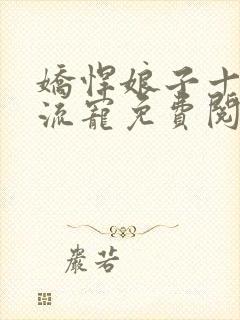 嬌悍娘子十
流寵免費閱
嚴若